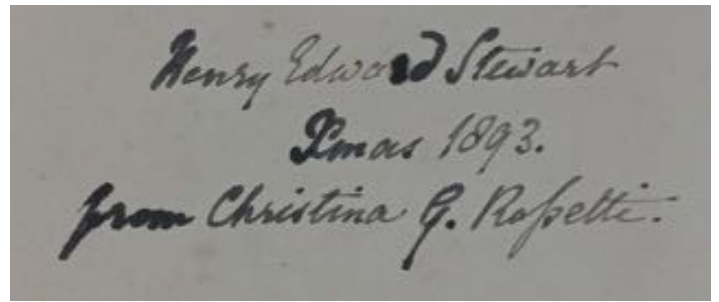 Henry Edward Stewart
Xmas 1893.
from Christina G. Roſsetti.